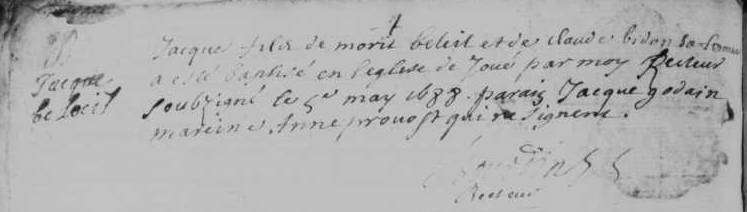 Jacque
beloeil
Jacque fils de morit beleil et de claude bidon sa femme
a esté baptisé en l'eglese de Joué par moy Recteur
soubzigné le 5e may 1688 parain Jacque godain
mareine Anne provost qui ne signent.
Recteur